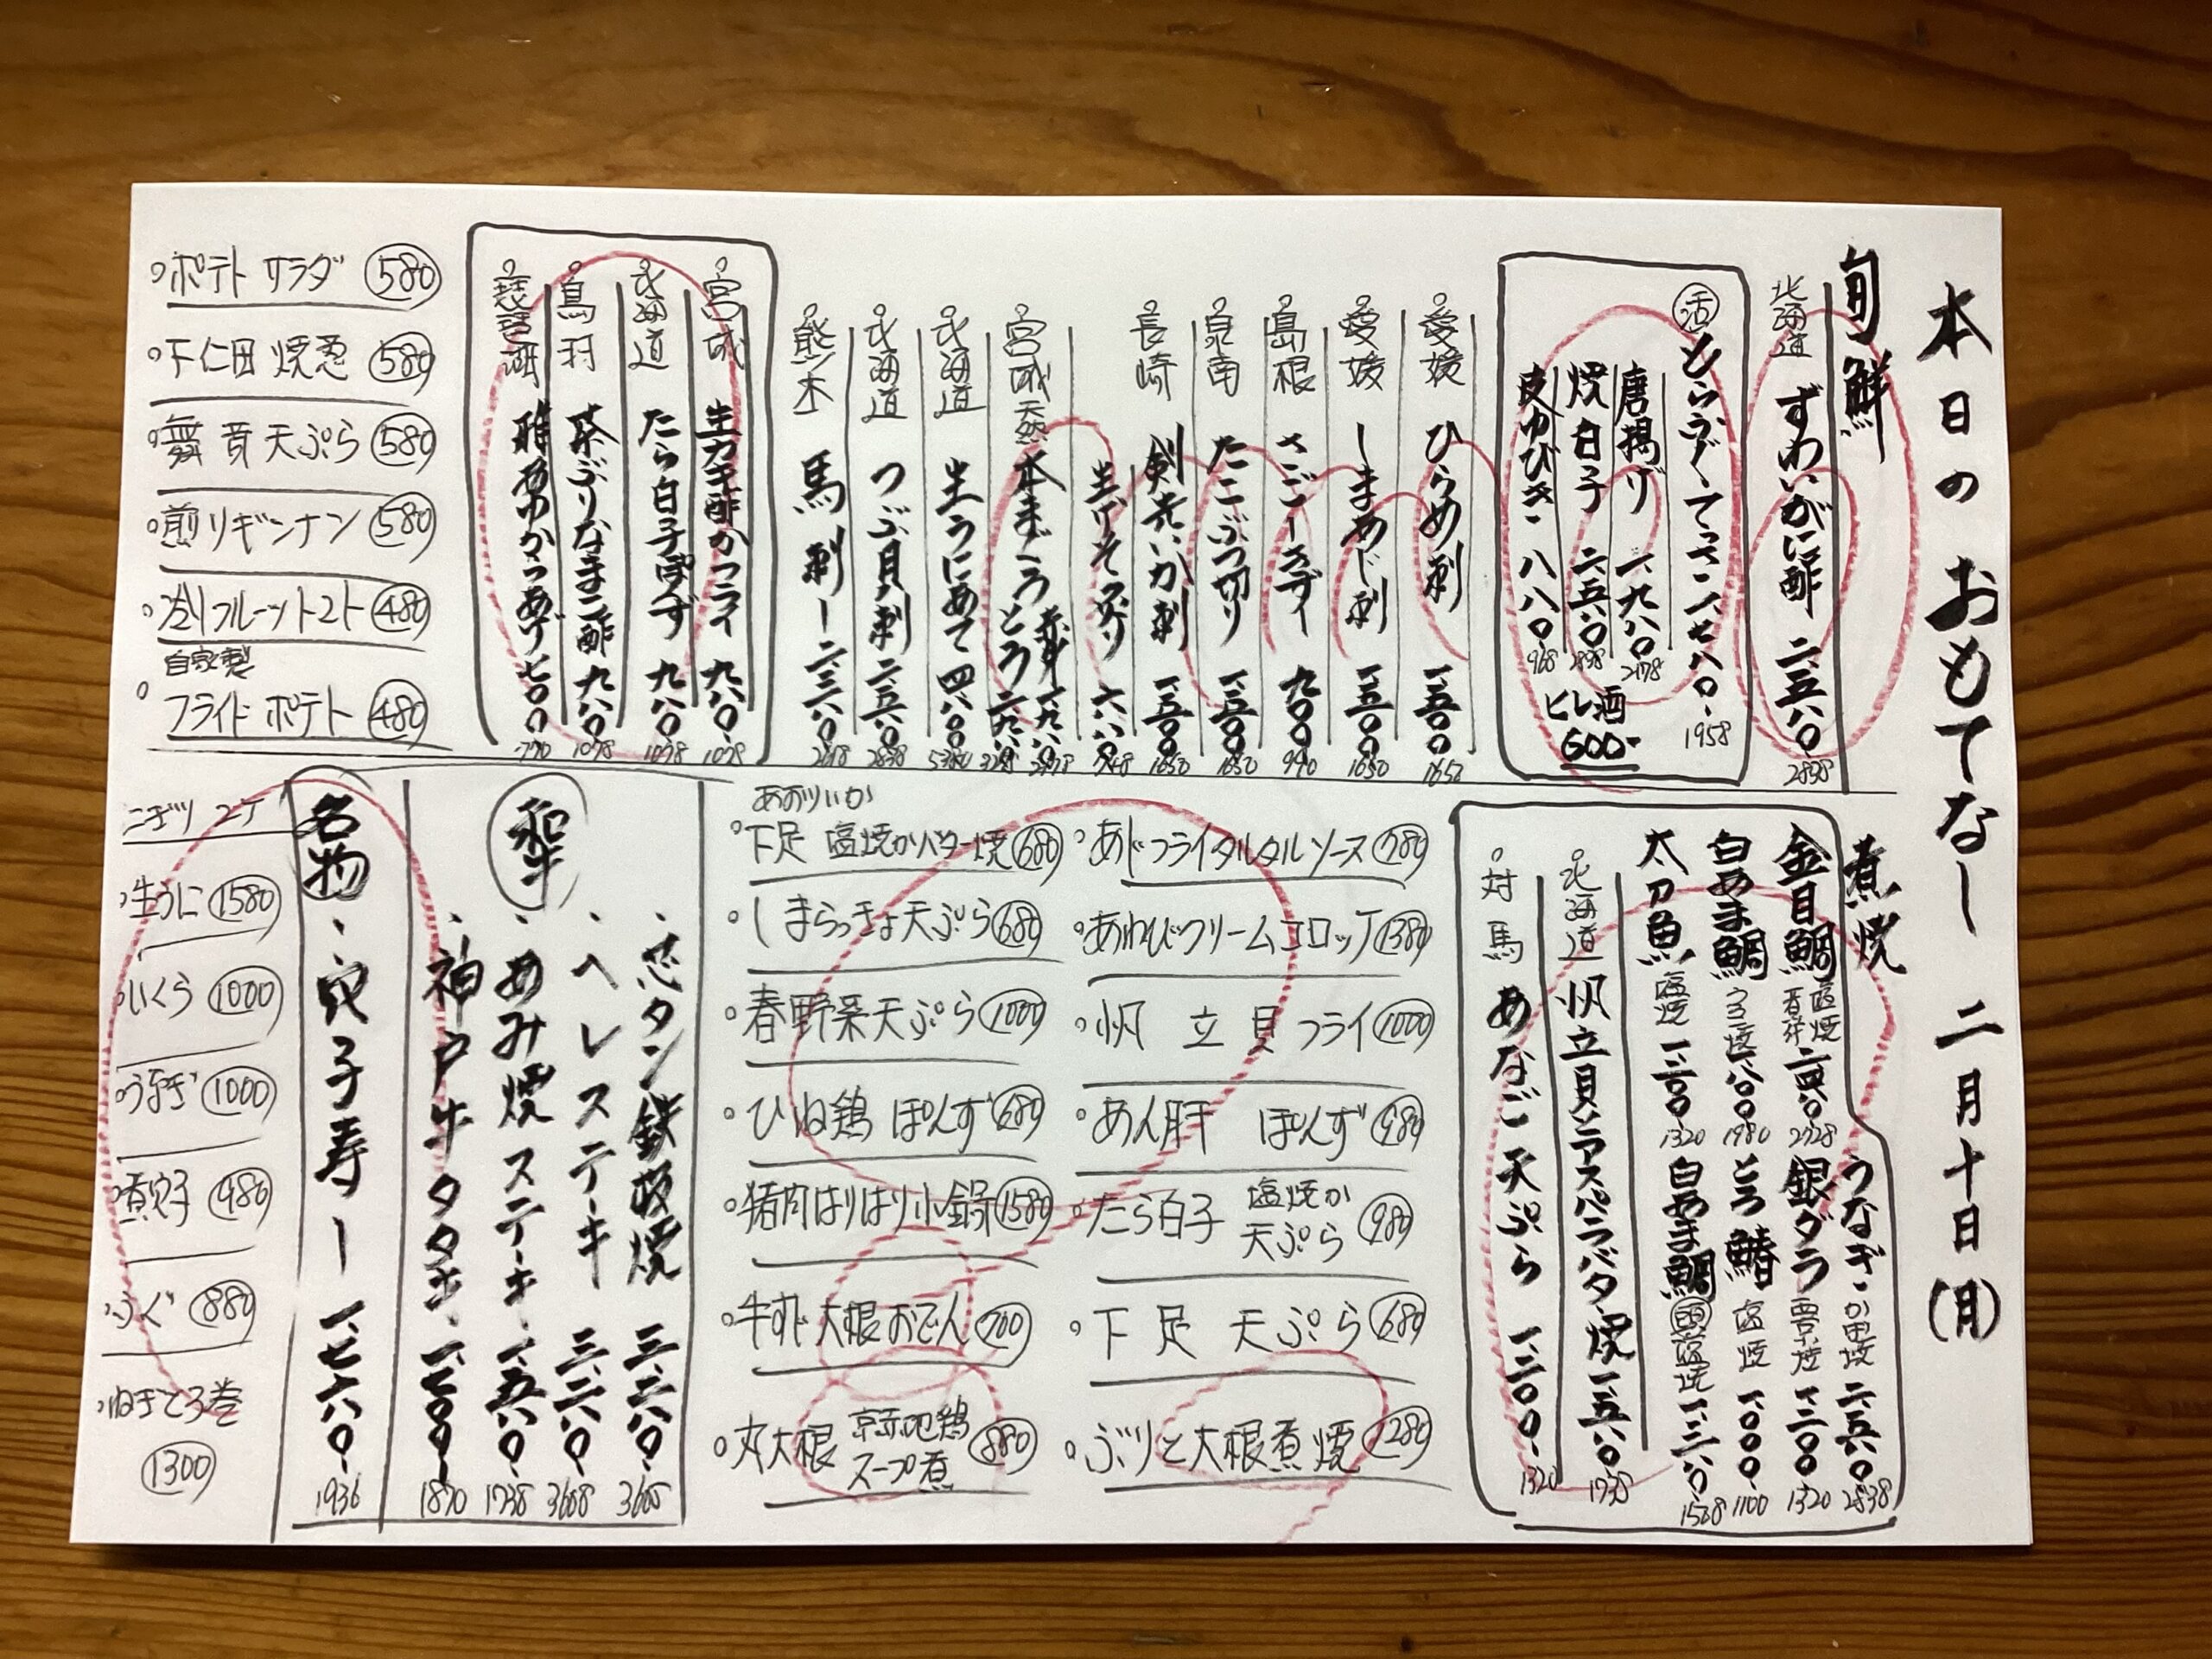 本日のおもてなし 二月十日(月)
旬鮮
北海道 ずわいがに酢 二、五八〇 2838
活 とらふぐてっさ 一、七八〇 1958
唐揚げ 一、九八〇 2178
焼白子 二、五八〇 2838
皮ゆびき 八八〇 968
ヒレ酒 600-
愛媛 ひらめ刺 一、五〇〇 1650
愛媛 しまあじ刺 一、五〇〇 1650
島根 さごしきずし 九〇〇 990
泉南 たこぶつ切り 一、五〇〇 1650
長崎 剣先いか刺 一、五〇〇 1650
生けそ造り
宮城 天然 本まぐろ 赤身 とろ
北海道 生うにあて 四、八〇〇
北海道 つぶ貝刺 二、五八〇 2838
熊本 馬刺し
宮城 生カキ酢かフライ 九八〇 1078
北海道 たら白子ぽんず 九八〇 1078
鳥羽 茶ぶりなまこ酢 九八〇 1078
琵琶湖 稚あゆからあげ 七〇〇 770
ポテトサラダ 580
下仁田焼葱 580
舞茸天ぷら 580
煎りギンナン 580
冷しフルーツトマト 480
自家製
フライドポテト 480
煮焼
金目鯛 塩焼 煮付 二、四八〇 2728
白あま鯛 うろこ焼 一、八〇〇 1980
太刀魚 塩焼 一、二〇〇 1320
うなぎ かば焼 二、五八〇 2838
銀ダラ 西京焼 一、二〇〇 1320
とろ鰆 塩焼 一、〇〇〇 1100
白あま鯛 頭 塩焼
北海道 帆立貝とアスパラバター焼 一、五八〇 1738
対馬 あなご天ぷら 一、二〇〇 1320
あじフライタルタルソース 780
あわびクリームコロッケ 1380
帆立貝フライ 1000
あん肝 ぽんず 980
たら白子 塩焼か 天ぷら 980
下足 天ぷら 680
ぶりと大根煮焼 1280
あおりいか
下足 塩焼かバター焼 680
しまらっきょ天ぷら 680
春野菜天ぷら 1000
ひね鶏 ぽんず 680
猪肉はりはり小鍋 1580
牛すじ大根おでん 700
丸大根 京赤地鶏 スープ煮 880
和牛
・芯タン鉄板焼
・ヘレステーキ
・あみ焼ステーキ 一、五八〇 1738
・神戸牛タタキ 一、七〇〇 1870
名物
・穴子寿し 一、七六〇 1936
にぎり 2ケ
生うに 1580
いくら 1000
うなぎ 1000
煮穴子 480
ふぐ 880
ねぎとろ巻
1300